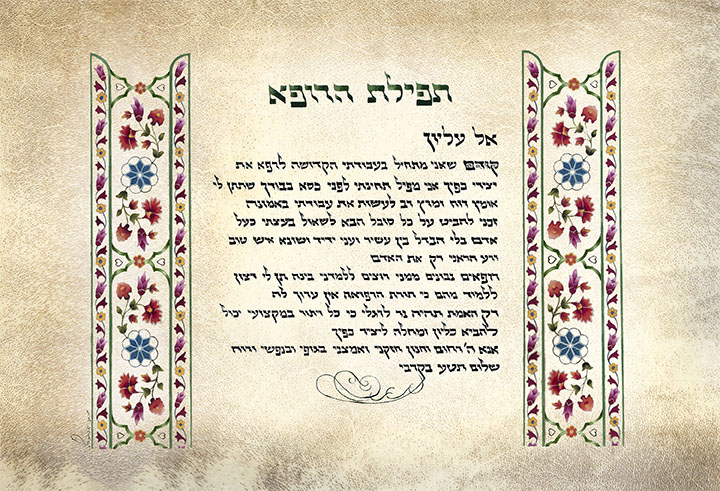 תפילת הרופא
אל עליון
קודם שאני מתחיל בעבודתי הקדושה לרפא את
יצירי כפיך אני מפיל תחינתי לפני כסא כבודך שתתן לי
אומץ רוח ומרץ רב לעשות את עבודתי באמונה
זכני להביט על כל סובל הבא לשאול בעצתי כעל
אדם בלי הבדל בין עשיר ועני ידיד ושונא איש טוב
ורע הראני רק את האדם
רופאים נבונים ממני רוצים ללמדני בינה תן לי רצון
ללמוד מהם כי תורת הרפואה אין ערוך לה
רק האמת תהיה נר לרגלי כי כל ויתור במקצועי יכול
להביא כליון ומחלה ליציר כפיך
אנא ה' רחום וחנון חזקני ואמצני בגופי ובנפשי ורוח
שלום תטע בקרבי